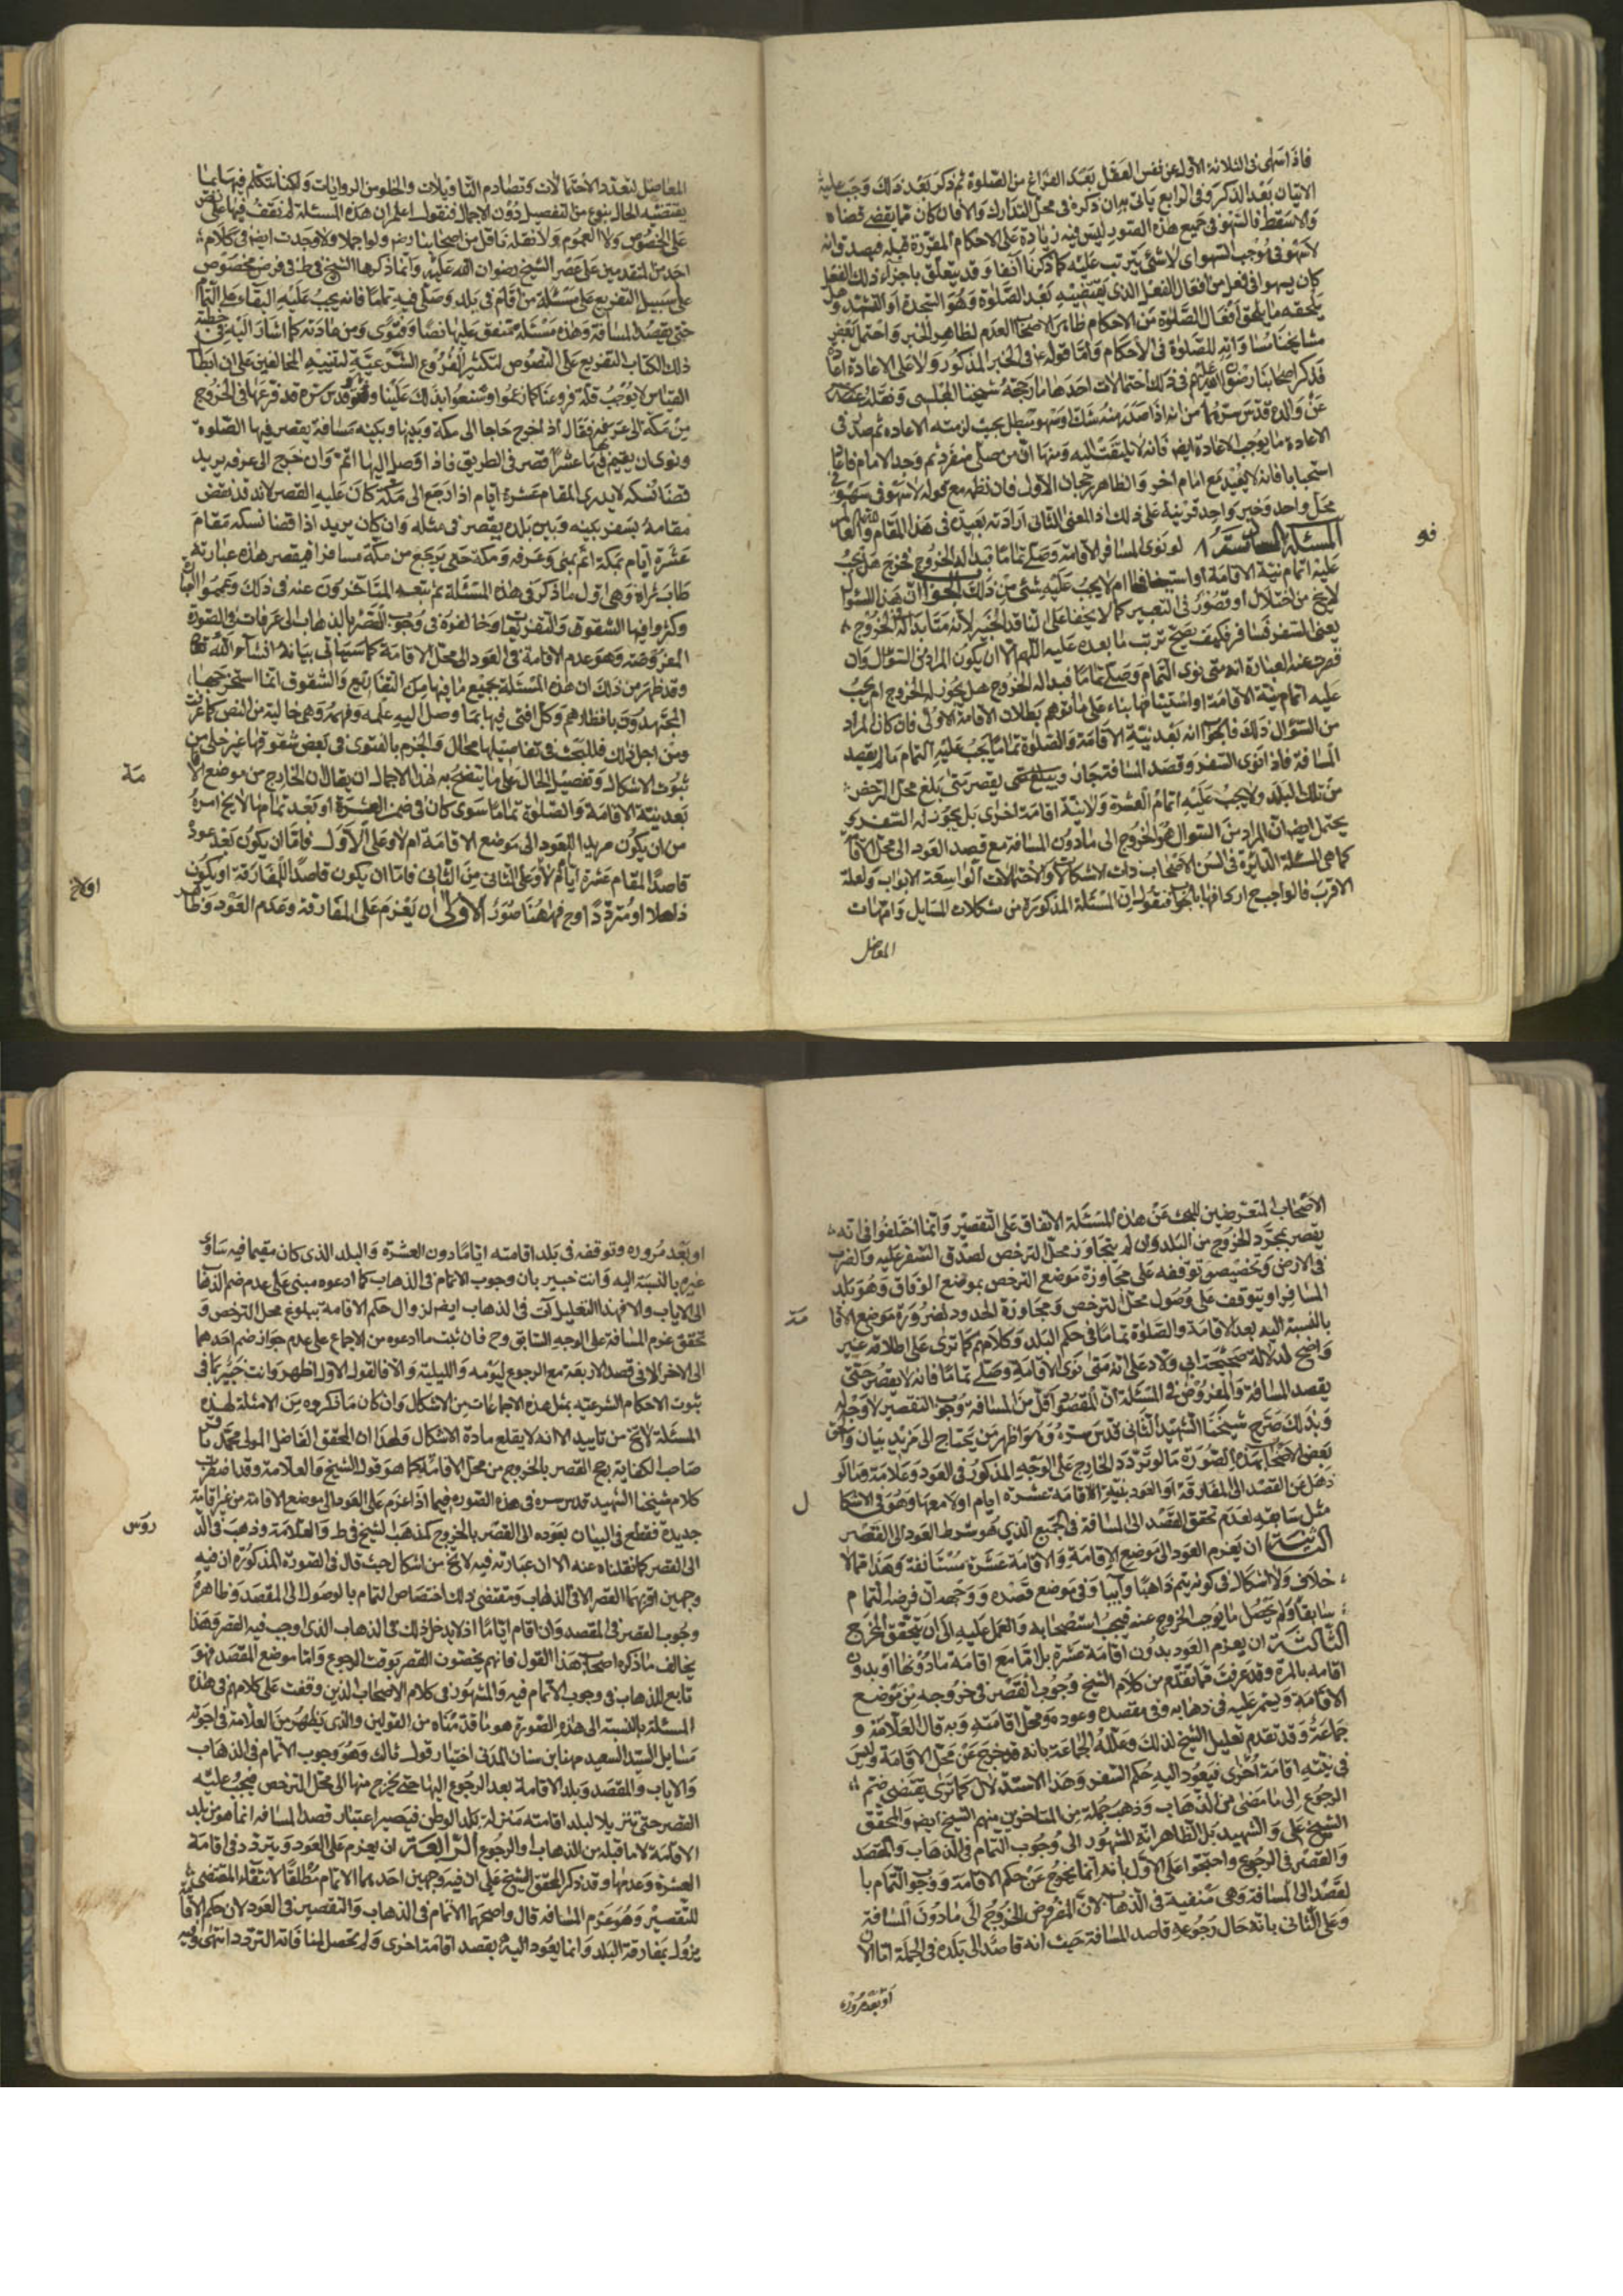 فاذا سهى فى الثلاثة الاول عن نفس الفعل بعد الفراغ من الصلوة ثم ذكر بعد ذلك وجب عليه
الاتيان بعد الذكر وفى الرابع ياتى به ان ذكره فى محل التدارك والا فان كان مما يقضى قضاه
والا سقط فالسهو فى جميع هذه الصور ليس فيه زيادة على الاحكام المقررة قبله فيصدق انه
لا سهو فى موجب السهو اى لا شئ يترتب عليه كما ذكرنا آنفا وقد يتعلق باجزاء ذلك الفعل
كان يسهو فى فعل من افعال الفعل الذى يقتضيه بعد الصلوة وهو السجدة او التشهد وهل
يلحقه ما يلحق افعال الصلوة من الاحكام ظاهر الاصحاب العدم لظاهر الخبر واحتمل بعض
مشايخنا مساواته للصلوة فى الاحكام واما قوله ع فى الخبر المذكور ولا على الاعادة اعادة
فذكر اصحابنا رضوان الله عليهم فى ذلك احتمالات احدها ما رجحه شيخنا المجلسى ونقله عنه
عن والده قدس سرهما من انه اذا صدر منه شك او سهو مبطل بحيث لزمته الاعاده ثم صدر فى
الاعادة ما يوجب الاعادة ايضا فانه لا يلتفت اليه ومنها ان من صلى منفرد ثم وجد الامام فاعاد
استحبابا فانه لا يعيد مع امام اخر والظاهر رجحان الاول فان نظمه مع قوله لا سهو فى سهو فى
محل واحد وخبر واحد قرينة على ذلك اذ المعنى الثانى ارادته بعيدة فى هذا المقام والله العالم
المسئلة لو نوى المسافر الاقامة وصلى تماما فبدا له الخروج فخرج هل يجب
عليه اتمام نية الاقامة او استينافها ام لا يجب عليه شئ من ذلك الجواب ان هذا السؤال
لا يخ من اختلال او قصور فى التعبير كما لا يخفى على الناقد الخبير لانه متى بدا له الخروج
يعنى السفر فسافر فكيف يصح ترتب ما بعده عليه اللهم الا ان يكون المراد من السؤال وان
قصرت عنه العبارة انه متى نوى التمام وصلى تماما فبدا له الخروج هل يجوز له الخروج ام يجب
عليه اتمام نية الاقامة او استينافها بناء على ما توهم بطلان الاقامة الاولى فان كان المراد
من السؤال ذلك فالجواب انه بعد نية الاقامة والصلوة تماما يجب عليه التمام ما لم يقصد
المسافة فاذا نوى السفر وقصد المسافة جاز ويبلغ حتى يقصر متى بلغ محل الترخص
من تلك البلد ولا يجب عليه اتمام العشرة ولا نية اقامة اخرى بل يجوز له السفر و
يحتمل ايضا ان المراد من السؤال هو الخروج الى مادون المسافة مع قصد العود الى محل الاقامة
كما هى المسئلة الدايرة فى السن الاصحاب ذات الاشكالات والاحتمالات الواسعة الابواب ولعله
الاقرب فالواجب ح اردافها بالجواب فنقول ان المسئلة المذكورة من مشكلات المسايل وامهات
المعاضل
المعاضل لتعدد الاحتمالات وتصادم التاويلات والخلو من الروايات ولكنا نتكلم فيها بما
يقتضيه الحال بنوع من التفصيل دون الاجمال فنقول اعلم ان هذه المسئلة لم نقف فيها على نص
على الخصوص ولا العموم ولا نقله ناقل من اصحابنا رضم ولو اجمالا ولا وجدت ايضا فى كلام
احد من المتقدمين على عصر الشيخ رضوان الله عليه وانما ذكرها الشيخ فى ط فى فرض مخصوص
على سبيل التفريع على مسئلة من اقام فى بلد وصلى فيه تماما فانه يجب عليه البقاء على التمام
حتى يقصد المسافة وهذه مسئلة متفق عليها نصا وفتوى ومن عادته كما اشار اليه فى خطبة
ذلك الكتاب التفريع على النصوص لتكثير الفروع الشرعية لتنبيه المخالفين على ان ابطال
القياس لا يوجب قلة فروعنا كما زعموا وشنعوا بذلك علينا وهو قدس سره قد فرعها فى الخروج
من مكة الى عرفة فقال اذا خرج حاجا الى مكة وبينها وبينه مسافة يقصر فيها الصلوة
ونوى ان يقيم بها عشرا قصر فى الطريق فاذا وصل اليها اتم وان خرج الى عرفه يريد
قضا نسكه لا يريد المقام عشرة ايام اذا رجع الى مكة كان عليه القصر لانه قد نقض
مقامه بسفر بينه وبين بلده يقصر فى مثله وان كان يريد اذا قضا نسكه مقام
عشرة ايام بمكة اتم بمنى وعرفه ومكة حتى يرجع من مكة مسافرا فيقصر هذه عبارته
طاب ثراه وهى اول ما ذكر فى هذه المسئلة ثم تبعه المتاخرون عنه فى ذلك
وكثروا فيها الشقوق والتفريعات وخالفوه فى وجوب القصر بالذهاب الى عرفات فى الصورة
المفروضة وهو عدم الاقامة فى العود الى محل الاقامة كما سياتى بيانه انشاء الله تعا
وقد ظهر من ذلك ان هذه المسئلة بجميع ما فيها من التفاريع والشقوق انما استخرجها
المجتهدون بانظارهم وكل افتى فيها بما وصل اليه علمه وفهمه وهى خالية من النص كما عرفت
ومن اجل ذلك فللبحث فى تفاصيلها مجال والجزم بالفتوى فى بعض شقوقها غير خلى من
ثبوت الاشكال وتفصيل الحال على ما يتضح به هذا الاجمال ان يقال ان الخارج من موضع الا
مة
بعد نية الاقامة والصلوة تماما سوى كان فى ضمن العشرة او بعد تمامها لا يخ امره
من ان يكون مريدا للعود الى موضع الاقامة ام لا وعلى الاول فاما ان يكون بعد عوده
قاصدا المقام عشرة ايام ام لا وعلى الثانى من الثانى فاما ان يكون قاصدا للمفارقة او يكون
ذاهلا او مترددا وح فههنا صور الاولى ان يعزم على المفارقة وعدم العود وظاهر
الاصحاب المتعرضين للبحث عن هذه المسئلة الاتفاق على التقصير وانما اختلفوا فى انه
يقصر بمجرد الخروج من البلد وان لم يتجاوز محل الترخص لصدق السفر عليه والضرب
فى الارض وتخصيص توقفه على مجاوزة موضع الترخص بموضع الوفاق وهو بلد
المسافر او يتوقف على وصول محل الترخص ومجاوزة الحدود لضرورة موضع الاقا
مة
بالنسبة اليه بعد الاقامة والصلوة تماما فى حكم البلد وكلامهم كما ترى على اطلاقه غير
واضح لدلالة صحيحة ابى ولاد على انه متى نوى الاقامة وصلى تماما فانه لا يقصر حتى
يقصد المسافة والمفروض فى المسئلة ان المقصود اقل من المسافة فوجوب التقصير لا وجه له
وبذلك صرح شيخنا الشهيد الثانى قدس سره وهو اظهر من يحتاج الى مزيد بيان والحق
بعض الاصحاب بهذه الصورة ما لو تردد الخارج على الوجه المذكور فى العود وعدمه وما لو
ذهل عن القصد الى المفارقة او العود بنية الاقامة عشرة ايام او لا معها وهو فى الاشكا
ل
مثل سابقه لعدم تحقق القصد الى المسافة فى الجميع الذى هو شرط العود الى القصر
الثانية ان يعزم العود الى موضع الاقامة والاقامة عشرة مستانفة وهذا مما لا
خلاف ولا اشكال فى كونه يتم ذاهبا وآيبا وفى موضع قصده ووجهه ان فرضه التمام
سابقا ولم يحصل ما يوجب الخروج عنه فيجب استصحابه والعمل عليه الى ان يتحقق المخرج
الثالثة ان يعزم العود بدون اقامة عشرة بل اما مع اقامة مادونها او بدون
اقامه بالمرة وقد عرفت مما تقدم من كلام الشيخ وجوب القصر فى خروجه من موضع
الاقامة ويستمر عليه فى ذهابه وفى مقصده وعوده ومحل اقامته وبه قال العلامة و
جماعة وقد تقدم تعليل الشيخ لذلك وعلله الجماعة بانه قد خرج عن محل الاقامة وليس
فى نيته اقامة اخرى فيعود اليه حكم السفر وهذا الاستدلال كما ترى يقتضى ضم
الرجوع الى ما مضى من الذهاب وذهب جملة من المتاخرين منهم الشيخ ايضا والمحقق
الشيخ على والشهيد بل الظاهر انه المشهور الى وجوب التمام فى الذهاب والمقصد
والقصر فى الرجوع واحتجوا على الاول بانه انما يخرج عن حكم الاقامة ووجوب التمام با
لقصد الى المسافة وهى منفية فى الذهاب لان المفروض الخروج الى مادون المسافة
وعلى الثانى بانه حال رجوعه قاصد المسافة حيث انه قاصد الى بلده فى الجملة اما الان
او بعد مروره
او بعد مروره وتوقفه فى بلد اقامته اياما دون العشرة والبلد الذى كان مقيما فيه ساوى
غيره بالنسبة اليه وانت خبير بان وجوب الاتمام فى الذهاب كما ادعوه مبنى على عدم ضم الذهاب
الى الاياب والا فهذا التعليل آت فى الذهاب ايضا لزوال حكم الاقامة ببلوغ محل الترخص و
تحقق عزم المسافة على الوجه السابق وح فان ثبت ما ادعوه من الاجماع على عدم جواز ضم احدهما
الى الاخر الا فى قصد الاربعة مع الرجوع ليومه والليلة والا فالقول الاول اظهر وانت خبير بما فى
ثبوت الاحكام الشرعيه بمثل هذه الاجماعات من الاشكال وان كان ما ذكروه من الامثلة لهذه
المسئلة لا يخ من تاييد الا انه لا يقلع مادة الاشكال ولهذا ان المحقق الفاضل المولى محمد باقر
صاحب الكفاية رجح القصر بالخروج من محل الاقامة كما هو قول الشيخ والعلامة وقد اضطرب
كلام شيخنا الشهيد قدس سره فى هذه الصوره فيما اذا عزم على العود الى موضع الاقامة من غير اقامة
جديدة فقطع فى البيان بعوده الى القصر بالخروج كمذهب الشيخ فى ط والعلامة وذهب فى الد
روس
الى القصر كما نقلناه عنه الا ان عبارته فيه لا يخ من اشكال حيث قال فى الصورة المذكورة ان فيه
وجهين اقربهما القصر الا فى الذهاب ومقتضى ذلك اختصاص التمام بالوصول الى المقصد وظاهره
وجوب القصر فى المقصد وان اقام اياما اذ لا يدخل ذلك فى الذهاب الذى اوجب فيه القصر وهذا
يخالف ما ذكره اصحاب هذا القول فانهم يخصون القصر بوقت الرجوع واما موضع المقصد فهو
تابع للذهاب فى وجوب الاتمام فيه والمشهور فى كلام الاصحاب الذين وقفت على كلامهم فى هذه
المسئلة بالنسبة الى هذه الصورة هو ما قدمناه من القولين والذى يظهر من العلامة فى اجوبة
مسايل السيد السعيد مهنا بن سنان المدنى اختيار قول ثالث وهو وجوب الاتمام فى الذهاب
والاياب والمقصد وبلد الاقامة بعد الرجوع اليها حتى يخرج منها الى محل الترخص فيجب عليه
القصر حتى تنزيلا لبلد اقامته منزلة بلد الوطن فيصير اعتبار قصد المسافه انما هو من بلد
الاقامة لا ما قبله من الذهاب والرجوع الرابعة ان يعزم على العود ويتردد فى اقامة
العشرة وعدمها وقد ذكر المحقق الشيخ على ان فيه وجهين احدهما الاتمام مطلقا لانتفاء المقتضى
للتقصير وهو عزم المسافه قال واصحهما الاتمام فى الذهاب والتقصير فى العود لان حكم الاقامة
يزول بمفارقة البلد وانما يعود اليه بقصد اقامة اخرى ولم تحصل لمنافاته التردد انتهى